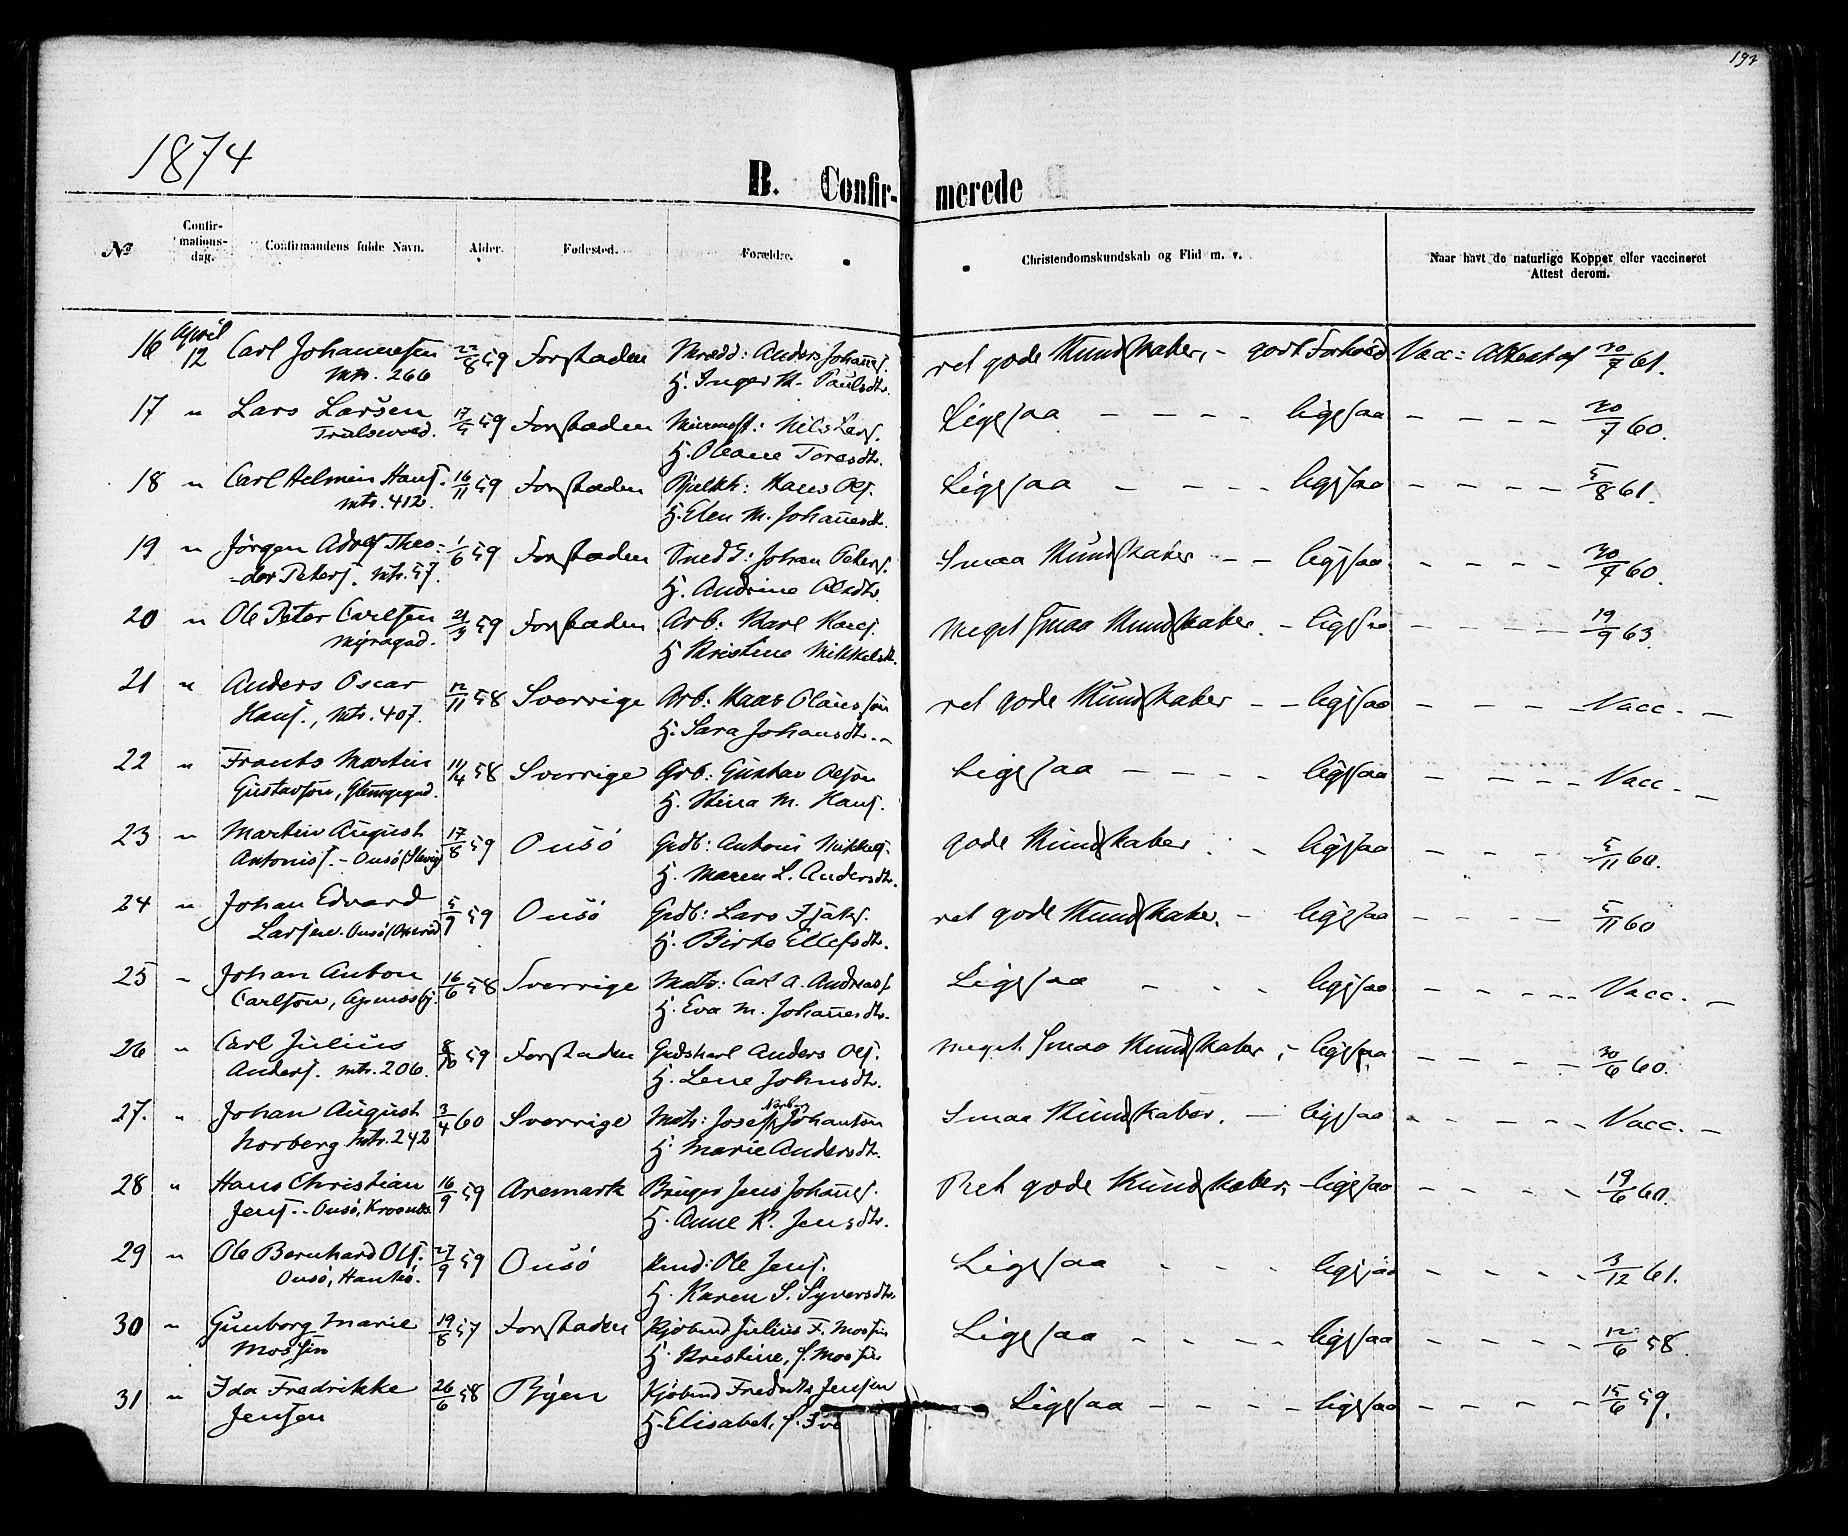 192
1874
B. Confirmerede
№
Confirmationsdag.
Confirmandens fulde Navn.
Alder.
Fødested.
Forældre.
Christendomskundskab og Flid m. v.
Naar havt de naturlige Kopper eller vaccineret
Attest derom.
16 April 12 Carl Johannesen 22/8 59 Forstaden Skrædd: Anders Johannes. ret gode Kundskaber, - godt Forhold Vacc: Attest af 20/7 61.
Mtr. 266 H. Inger M. Paulsdtr.
17 " Lars Larsen 17/5 59 Forstaden Nils Lars. Ligesaa - - - - ligesaa - - - - 20/7 60.
Trulsevold. H. Oleane Toresdtr.
18 " Carl Helmin Hans. 16/11 59 Forstaden Hans Ols. Ligesaa - - - - ligesaa - - - - 5/8 61.
Mtr. 412. H. Elen M. Johannesdtr.
19 " Jörgen Adolf Theo- 1/6 59 Forstaden Smed: Johan Peters. Smaa Kundskaber - - ligesaa - - - -
dor Peters. Mtr. 57. H. Andrine Olsdtr.
20 " Ole Peter Carlsen 21/3 59 Forstaden Arb: Karl Hans. Meget smaa Kundskaber. - ligesaa - - - - 19/9 63.
Myragad. H. Kristine Mikkelsdtr.
21 " Anders Oscar 12/11 58 Sverrige Arb: Olausson ret gode Kundskaber - - ligesaa - - - - Vacc. -
Hans., Mtr. 407. H. Sara Johansdtr.
22 " Frants Martin 11/4 58 Sverrige Arb: Gustav Olson Ligesaa - - - - ligesaa - - - - Vacc. -
Gustavson, Glemgegad. H. Stina M. Hans.
23 " Martin August 17/8 59 Onsö Grdb: Antoni Mikkels. gode Kundskaber - ligesaa - - - 5/11 60.
Antonis. - Onsö H. Maren L. Andersdtr.
24 " Johan Edvard 5/9 59 Onsö Grdb: Lars Ligesaa ret gode Kundskaber. - ligesaa - - - - 5/11 60
Larsen. Onsö H. Birte Ellefsdtr.
25 " Johan Anton 16/6 58 Sverrige Mats: Carl A. Andreas. Ligesaa - - - ligesaa - - - - Vacc. -
Carlson, H. Eva M. Johannesdtr.
26 " Carl Julius 8/10 59 Forstaden Gdskarl Anders Ols. meget smaa Kundskaber, - ligesaa - - - - 20/6 60.
Anders. Mtr. 206. H. Lene Johnsdtr.
27. " Johan August 3/4 60 Sverrige Mats: Josef Johanson Smaa Kundskaber. - ligesaa - - - - Vacc. -
Norberg Mtr. 242 H. Marie Andersdtr.
28 " Hans Christian 16/9 59 Aremark Bruger Jens Johannes. Ret gode Kundskaber, - ligesaa - - - - 19/6 60.
Jens. - Onsö, H. Anne K. Jensdtr.
29 " Ole Bernhard Ols. 27/9 59 Onsö Ole Jens. Ligesaa - - - ligesaa - - - - 3/12 61.
Onsö, Hankö. H. Karen S. Syversdtr.
30 " Gunborg Marie 19/8 57 Forstaden Kjöbmd Julius F. Mossin Ligesaa - - - - ligesaa - - - - 12/6 58.
Mossin H. Kristine, f. Mossin
31 " Ida Fredrikke 26/6 58 Byen Kjöbmd Fredrik Jensen Ligesaa - - - - ligesaa - - - - 15/6 59.
Jensen H. Elisabet, f.